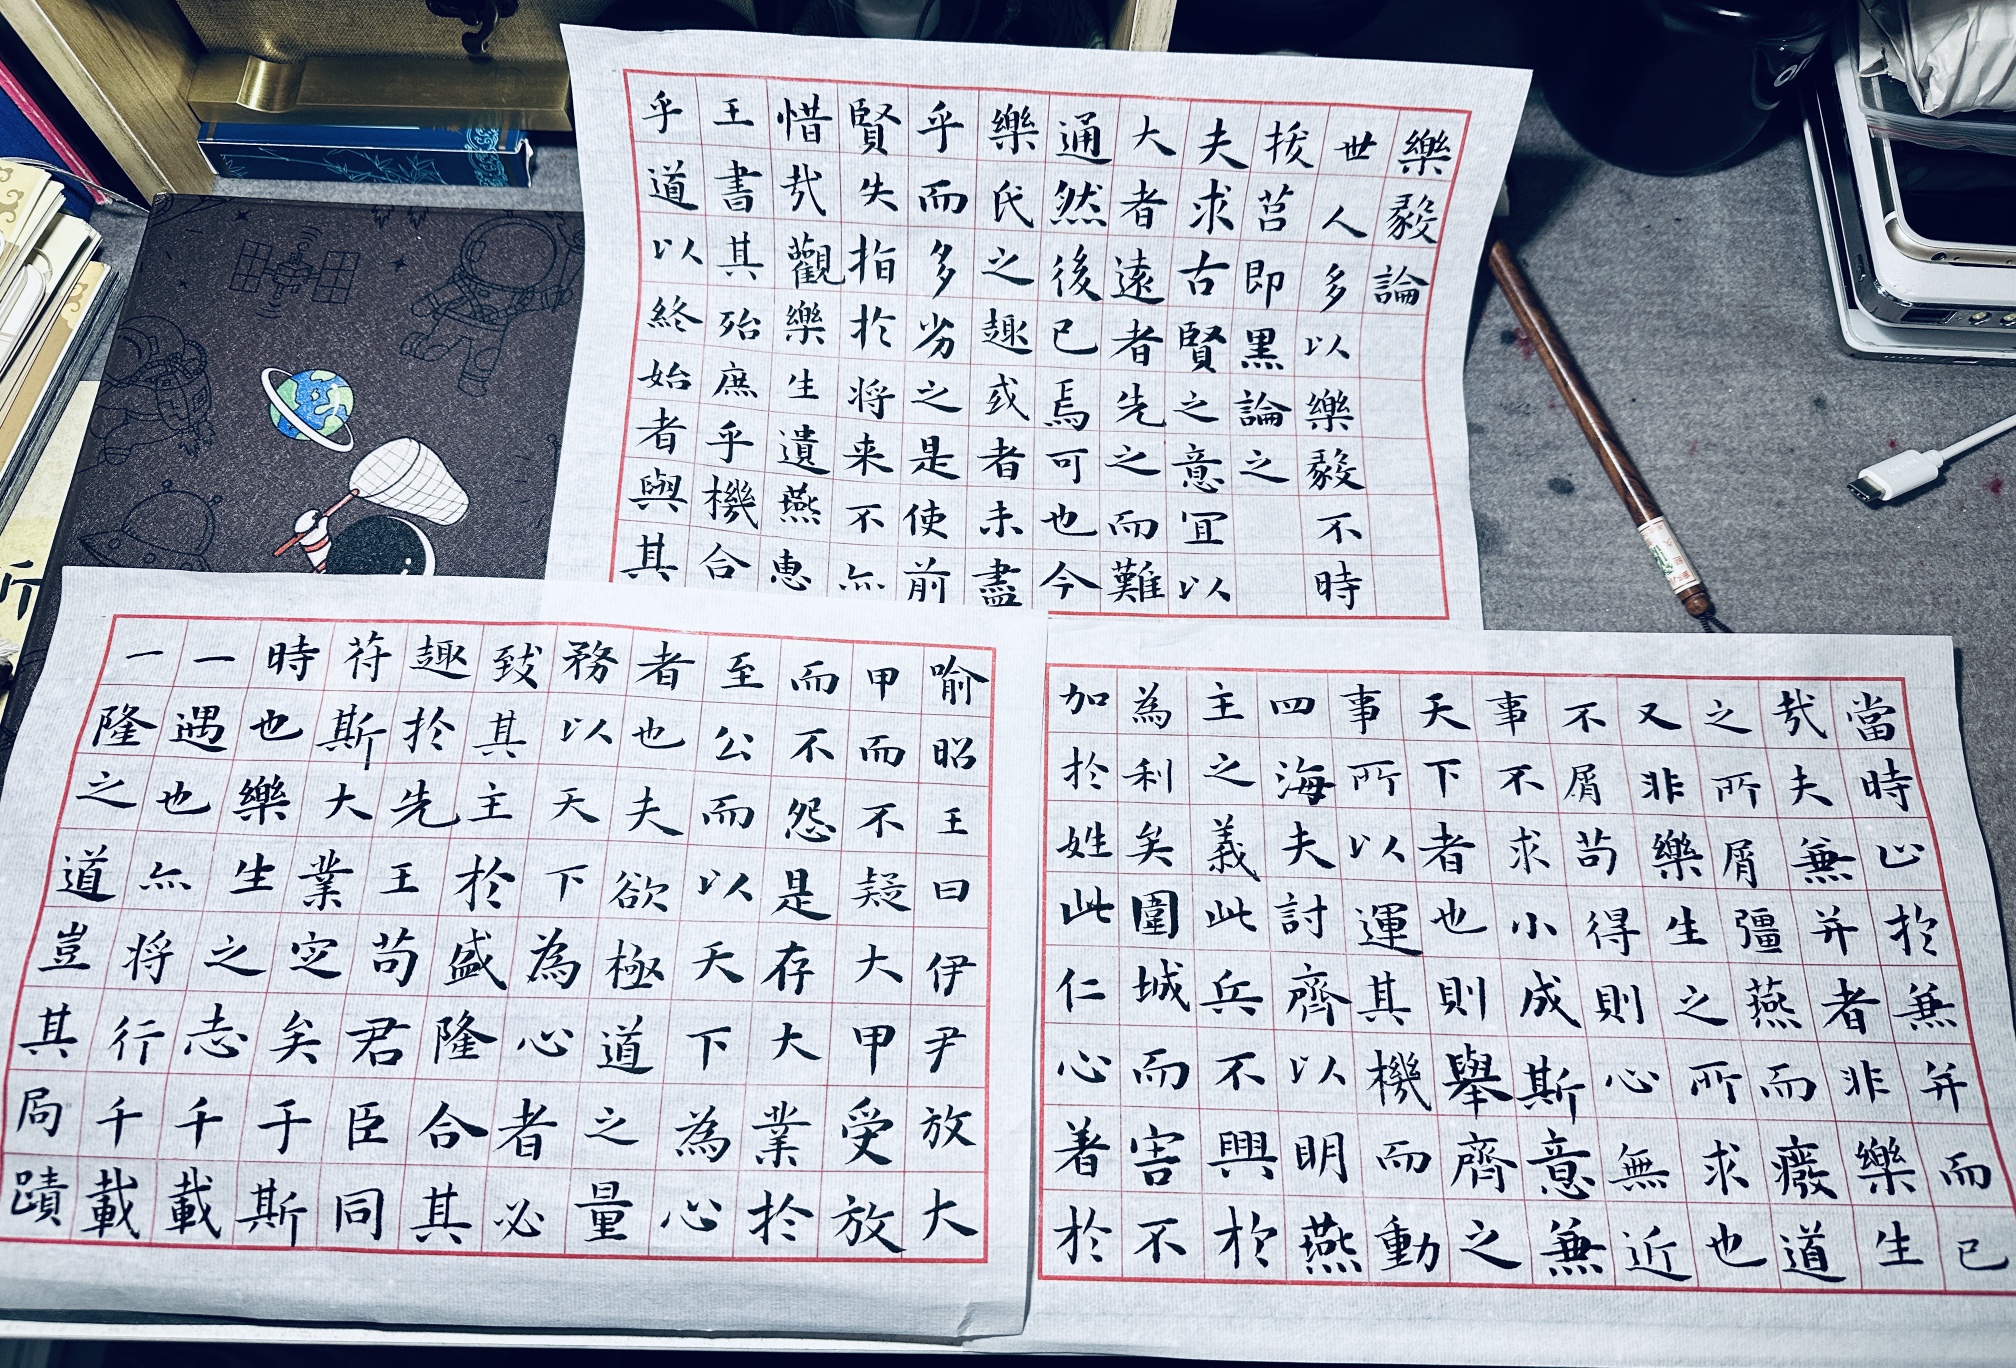 樂毅論
世人多以樂毅不時
拔莒即黑論之
夫求古賢之意宜以
大者遠者先之而難
通然後已焉可也今
樂氏之趣或者未盡
乎而多劣之是使前
賢失指於将来不亦
惜哉觀樂生遺燕惠
王書其殆庶乎機合
乎道以終始者與其
喻昭王曰伊尹放大
甲而不疑大甲受放
而不怨是存大業於
至公而以天下為心
者也夫欲極道之量
務以天下為心者必
致其主於盛隆合其
趣於先王苟君臣同
符斯大業定矣于斯
時也樂生之志千載
一遇也亦将行千載
一隆之道豈其局蹟
當時止於兼并而已
哉夫兼并者非樂生
之所屑彊燕而廢道
又非樂生之所求也
不屑苟得則心無近
事不求小成斯意兼
天下者也則舉齊之
事所以運其機而動
四海夫討齊以明燕
主之義此兵不興於
為利矣圍城而害不
加於姓此仁心著於